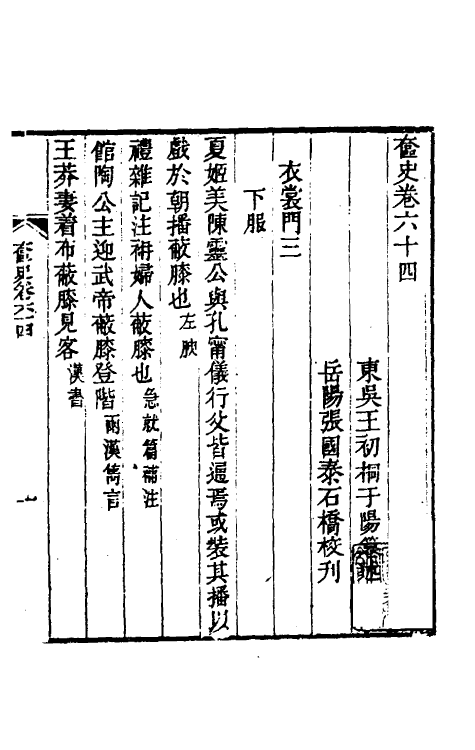 奩史卷六十四
東吳王初桐于陽纂述
岳陽張國泰石橋校刊
衣裳門三
下服
夏姬美陳靈公與孔甯儀行父皆通焉或裝其播以
戲於朝播蔽膝也左腴
禮雜記注袡婦人蔽膝也急就篇補注
館陶公主迎武帝蔽膝登階兩漢雋言
王莽妻着布蔽膝見客漢書
奩史卷六十四
一